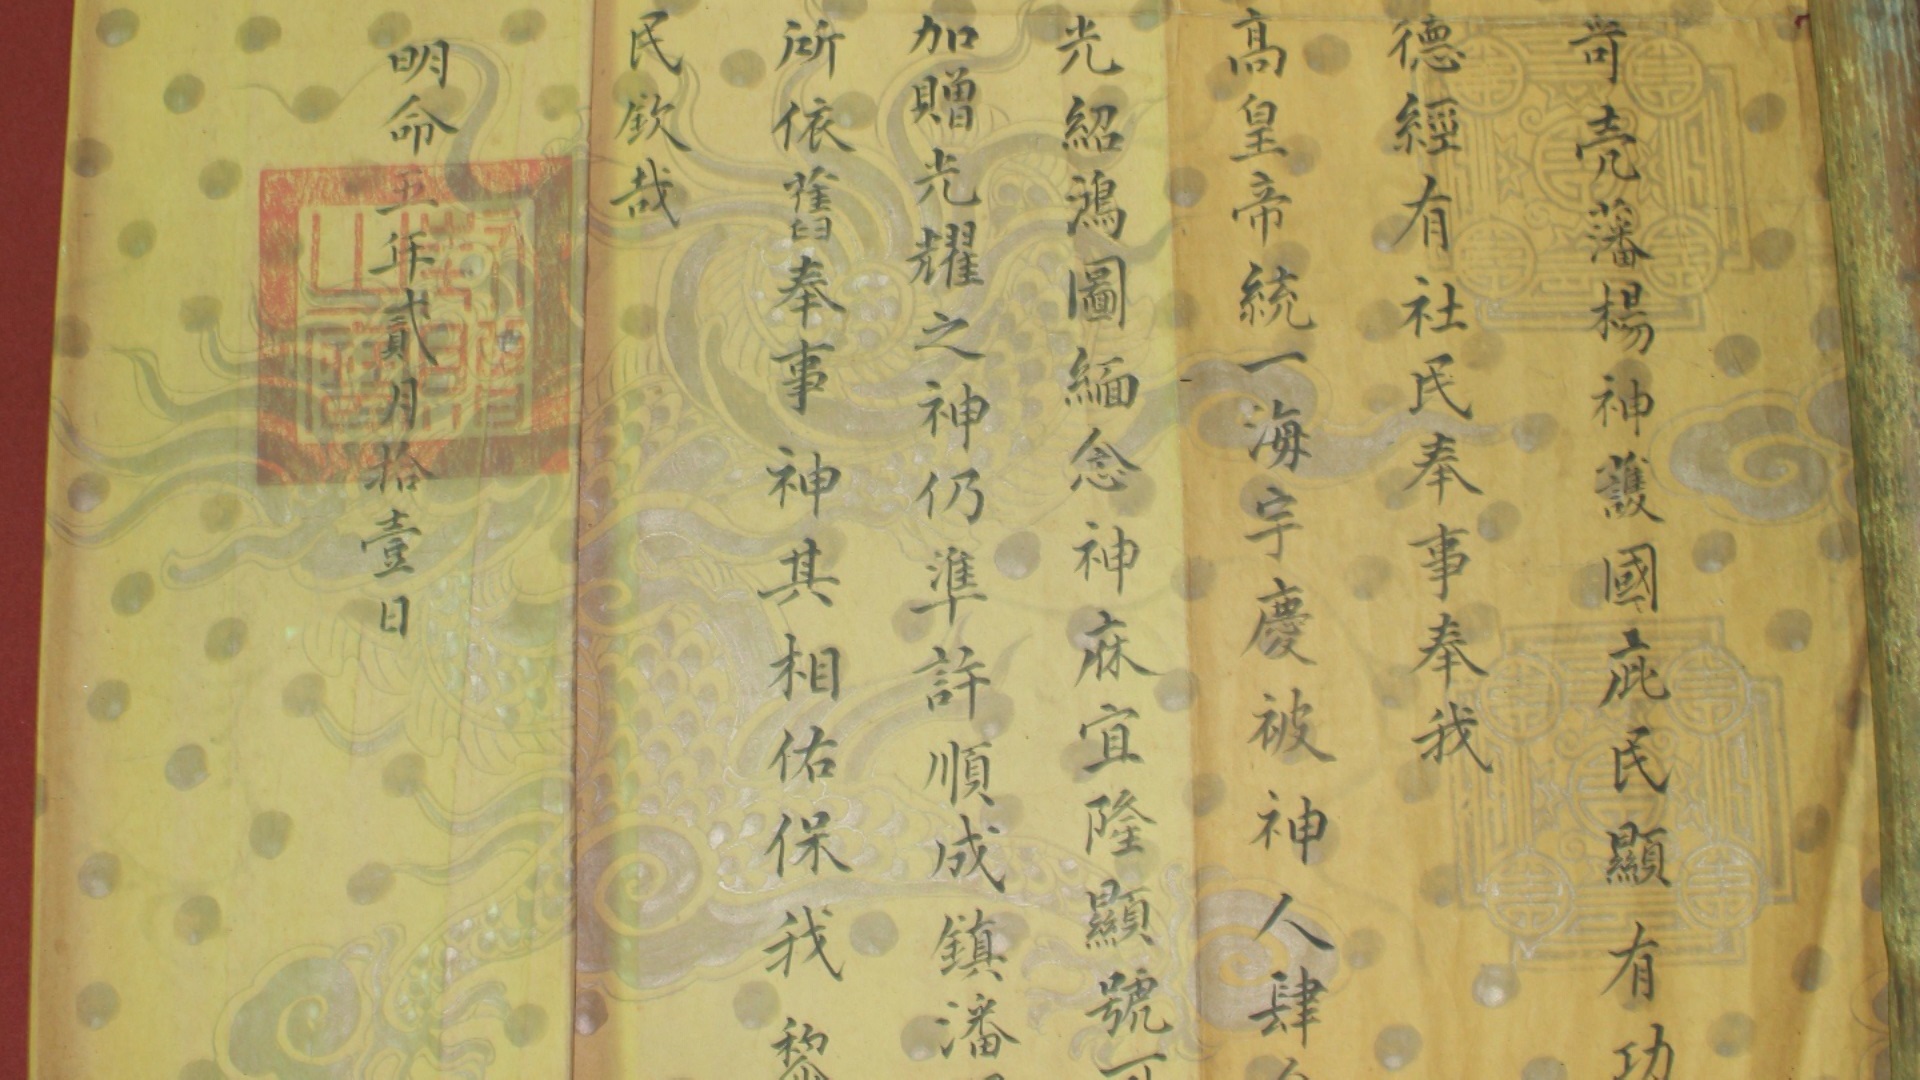 哿壳藩楊神護國庇民顯有功
德經有社民奉事奉我
高皇帝統一海宇慶被神人肆
光紹鴻圖緬念神庥宜隆顯號
加贈光耀之神仍準許順成鎮潘
所依舊奉事神其相佑保我黎
民欽哉
明命五年貳月拾壹日